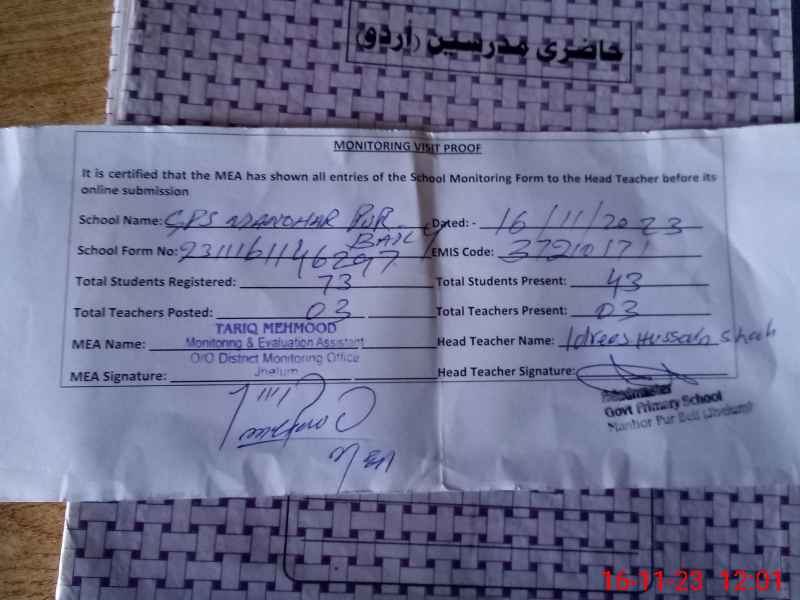 حاضری مدرسین (اردو)
MONITORING VISIT PROOF
It is certified that the MEA has shown all entries of the School Monitoring Form to the Head Teacher before its
online submission
School Name: GPS MANOHAR PUR Dated: - 16/11/2023
BAILY
School Form No: 9311161146297 EMIS Code: 37210171
Total Students Registered: 73 Total Students Present: 43
Total Teachers Posted: 03 Total Teachers Present: 03
TARIQ MEHMOOD
MEA Name: Monitoring & Evaluation Assistant Head Teacher Name: Idrees Hussain Shah
O/O District Monitoring Office
MEA Signature: Jhelum Head Teacher Signature:
Headmaster
Govt Primary School
Manhor Pur Beli (Jhelum)
16-11-23 12:01